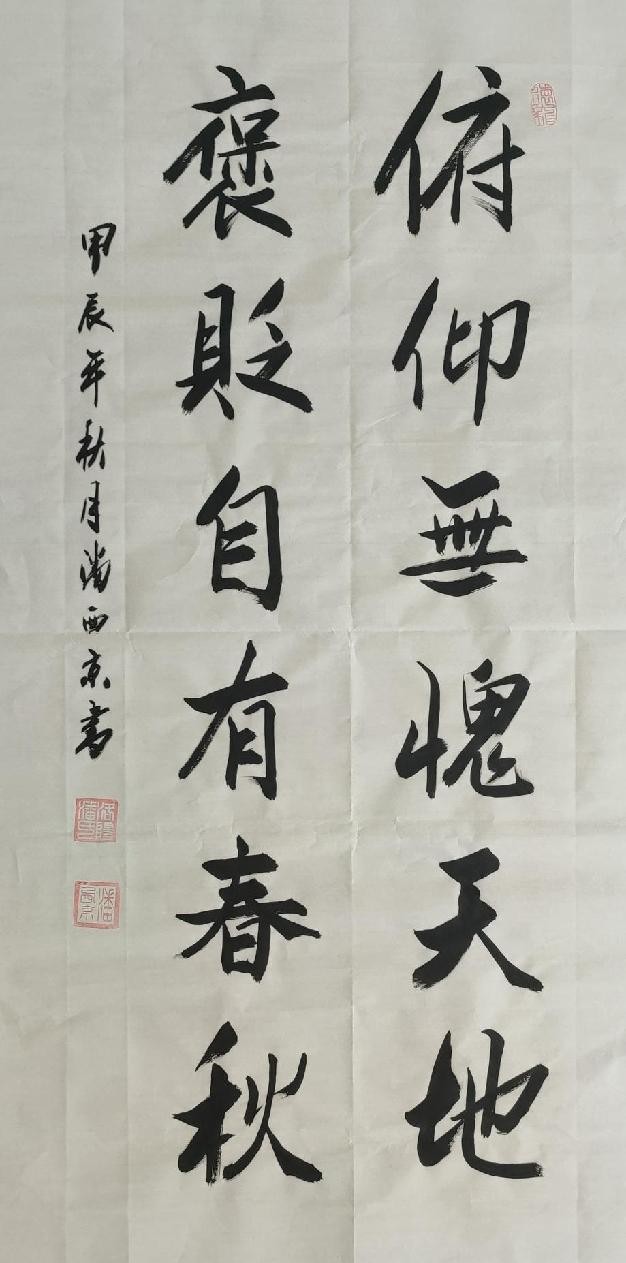 俯仰無愧天地
褒貶自有春秋
甲辰年秋月潘西京書